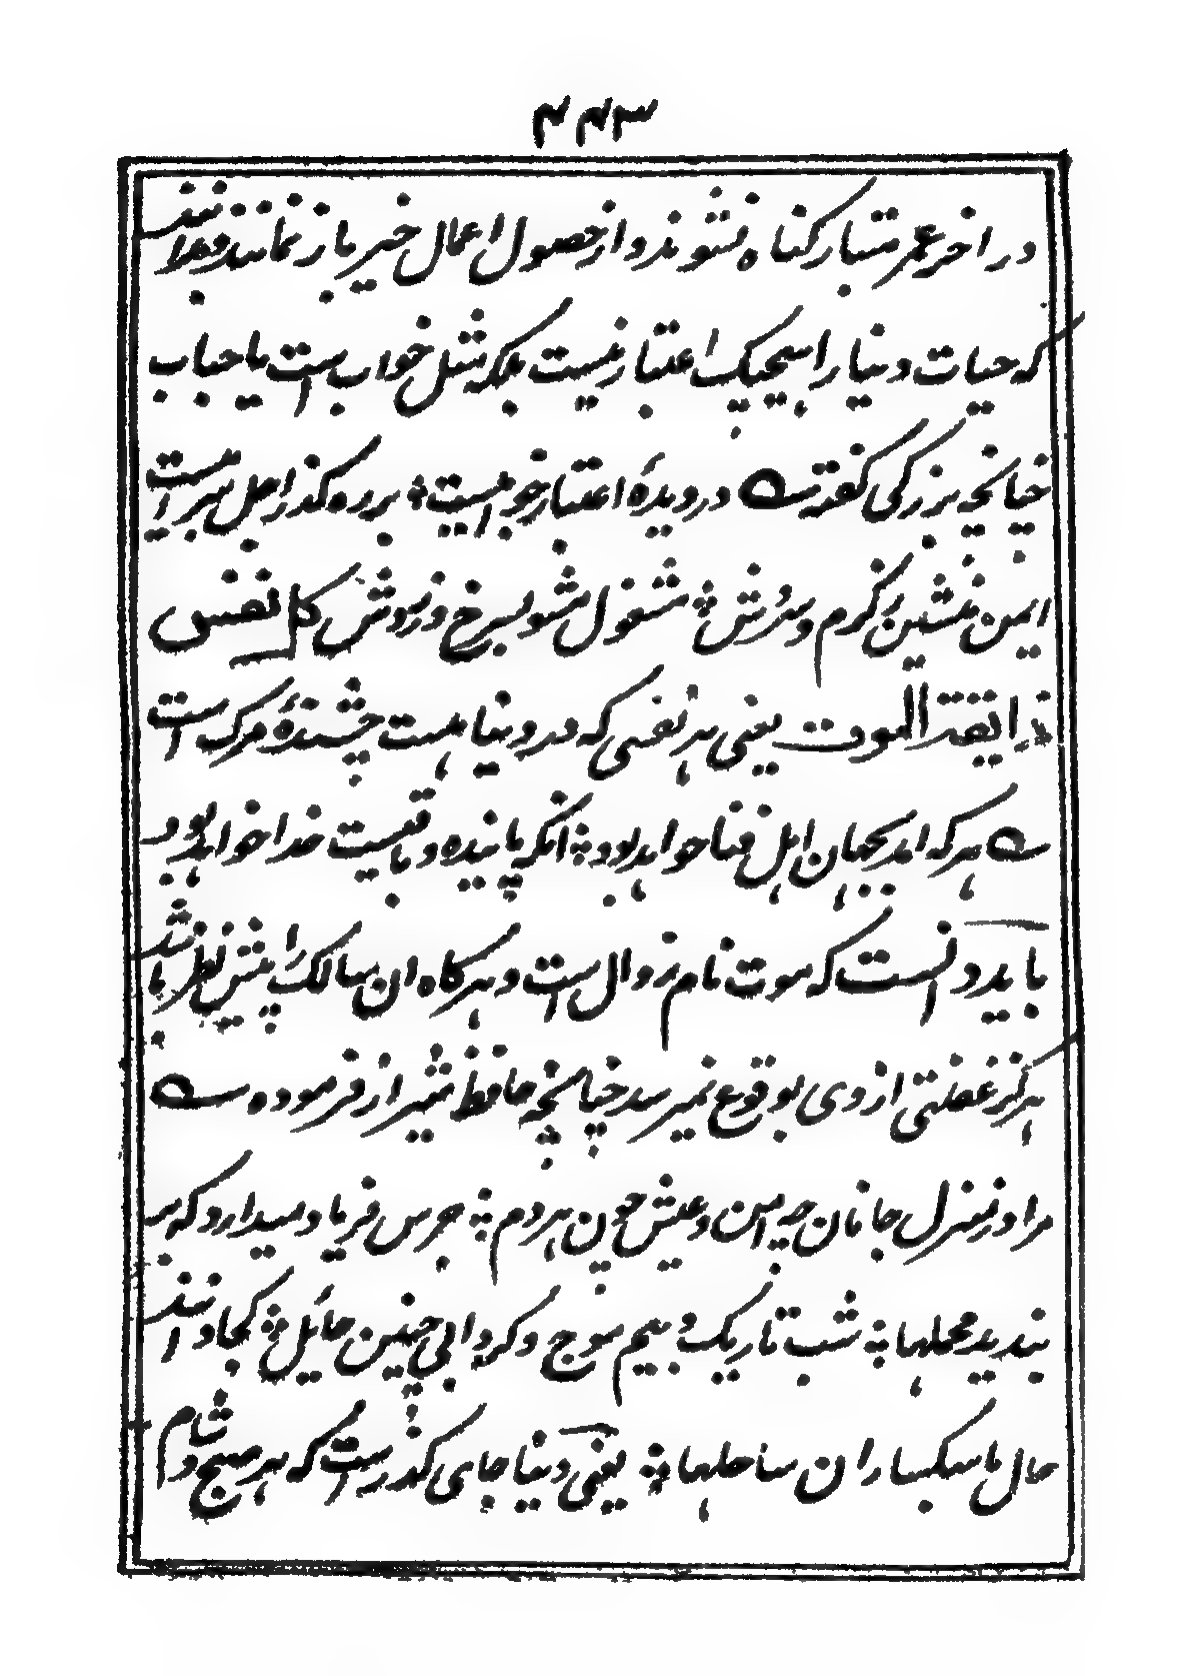 ۴۴۳
در اخر عمر متبار کناه نشوند و از حصول اعمال خیر باز نمانند و بدانند
که حیات دنیا را بهیچیک اعتبار نیست بلکه مثل خواب است یا حباب
چنانچه بزرکی کفته در دیدهٔ اعتبار خوابیست بر ره کذر اجل سرابیست
ایمن منشین ز کرم و سردش مشغول مشو بسرخ و زردش کل نفس
ذایقة الموت یعنی هر نفسی که در دنیا هست چشندهٔ مرک است
هر که امد بجهان اهل فنا خواهد بود انکه پاینده و باقیست خدا خواهد بود
باید دانست که موت نام زوال است و هرکاه ان سالک را پیش نظر باشد
هرکز غفلتی از وی بوقوع نمیرسد چنانچه حافظ شیراز فرموده
مرا در منزل جانان چه امن و عیش چون هر دم جرس فریاد میدارد که بر
بندید محملها شب تاریک و بیم موج و کردابی چنین حایل کجا دانند
حال ما سبکساران ساحلها یعنی دنیا جای کذر است که هر صبح و شام